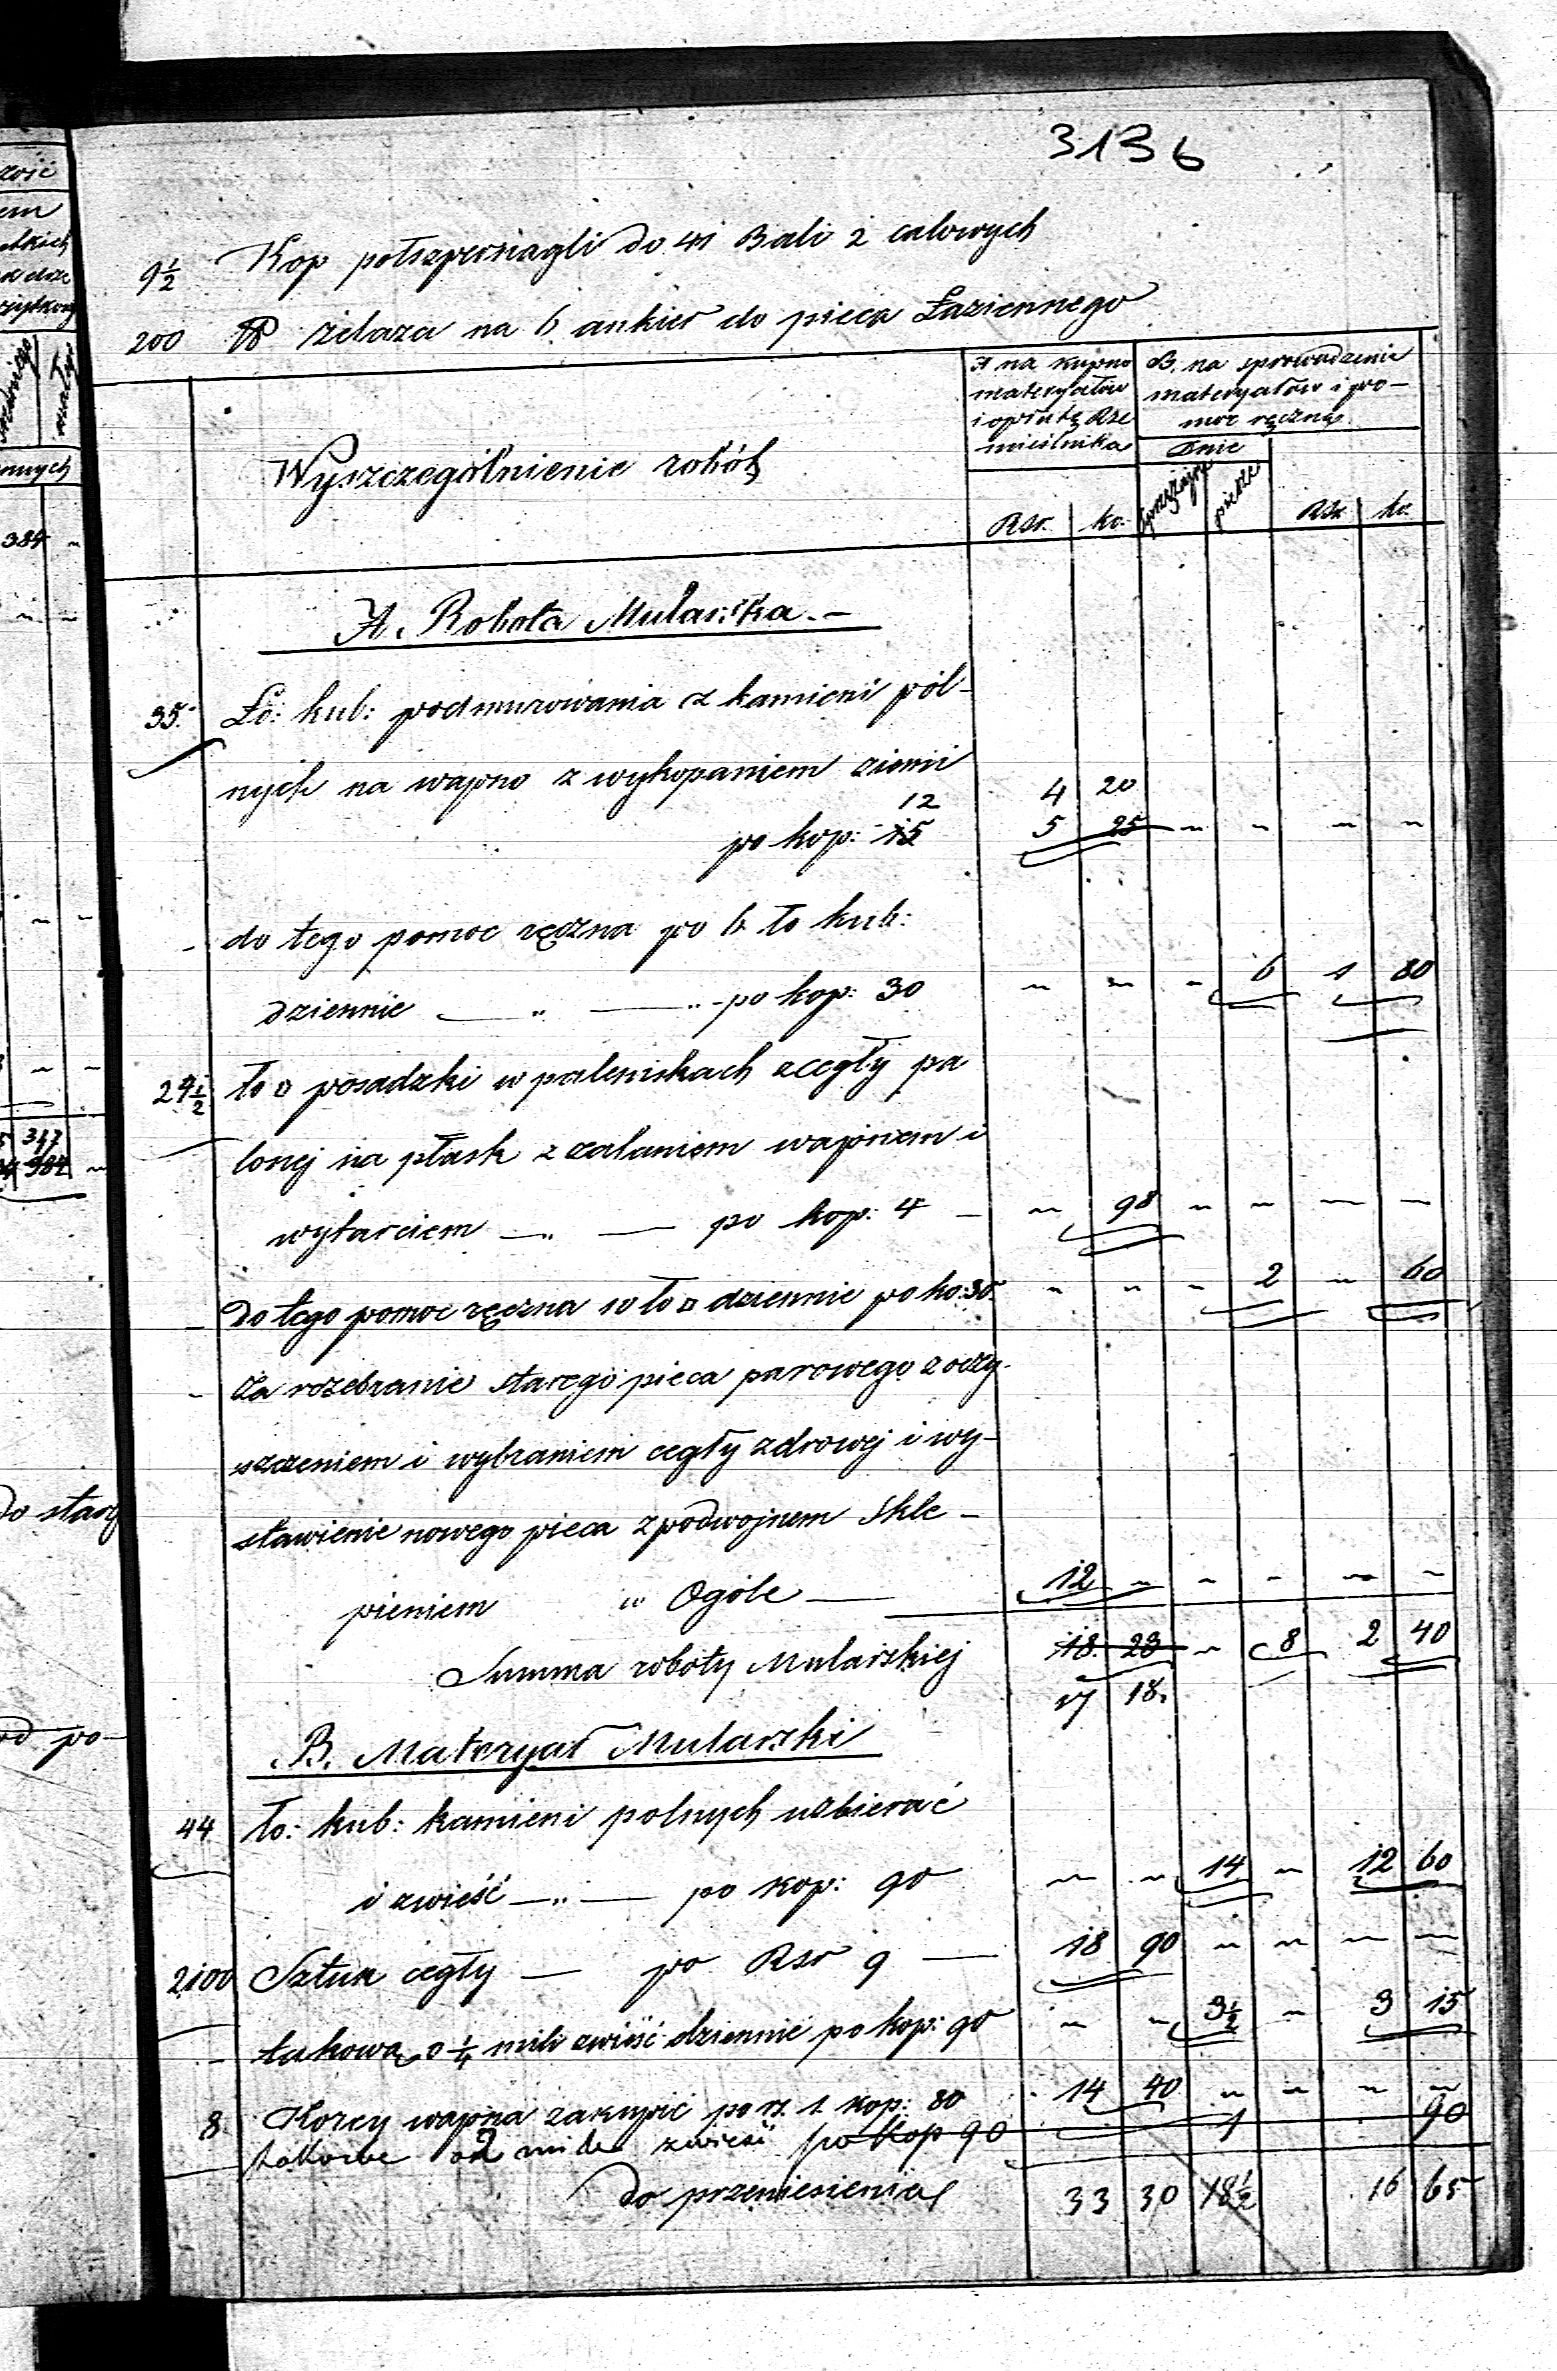 3136
9½ Kop półszpernagli do 41 Bali 2 calowych
200 ℔ żelaza na 6 ankier do pieca Łaziennego
Wyszczególnienie robót
A na kupno materyałów i opłatę Rze mieślnika
B. na sprowadzenie materyałów i po- moc ręczną
Dnie
Rsr. ko. sprzężajne piesze Rsr ko.
A. Robota Mularska.-
35. Ło: kub: podmurowania z kamieni pól-
nych na wapno z wykopaniem ziemi
12 4 20
po kop: 15 5 25 " " " "
- do tego pomoc ręczna po 6 ło kub:
dziennie — " — " - po kop: 30 " " " 6 1 80
24½ ło □ posadzki w paleniskach z cegły pa
lonej na płask z zalaniem wapnem i
wytarciem — " — po kop: 4 - " 98 " " — —
- Do tego pomoc ręczna 10 ło □ dziennie po ko: 30. " " " 2 " 60
- Za rozebranie starego pieca parowego z oczy-
szczeniem i wybraniem cegły zdrowej i wy-
stawienie nowego pieca z podwojnem Skle-
pieniem " Ogóle — 12 " " " " "
Summa roboty Mularskiej 18. 23 " 8 2 40
17 18.
B. Materyał Mularski
44 ło: kub: kamieni polnych uzbierać
i zwieść — " — po kop: 90 " " 14 " 12 60
2100 Sztuk cegły — po Rsr 9 — 18 90 " " " "
- takową o ¼ mili zwieść dziennie po kop: 90 " " 3½ " 3 15
8. Korcy wapna zakupić po rs. 1 kop: 80 14 40 " " " "
takowe od mile zwieść po kop 90 1 90
do przeniesienia 33 30 18½ 16 65
384 "
317
384 "
do stary